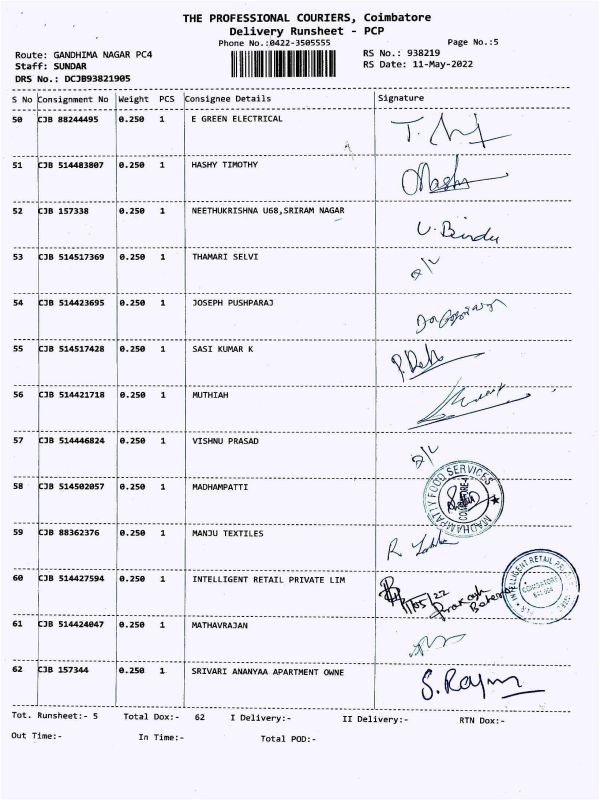 THE PROFESSIONAL COURIERS, Coimbatore
Delivery Runsheet - PCP
Phone No.:0422-3505555 Page No.:5
Route: GANDHIMA NAGAR PC4 RS No.: 938219
Staff: SUNDAR RS Date: 11-May-2022
DRS No.: DCJB93821905
S No Consignment No Weight PCS Consignee Details Signature
50 CJB 88244495 0.250 1 E GREEN ELECTRICAL
51 CJB 514483807 0.250 1 HASHY TIMOTHY
52 CJB 157338 0.250 1 NEETHUKRISHNA U68,SRIRAM NAGAR U. Bindu
53 CJB 514517369 0.250 1 THAMARI SELVI
54 CJB 514423695 0.250 1 JOSEPH PUSHPARAJ
55 CJB 514517428 0.250 1 SASI KUMAR K
56 CJB 514421718 0.250 1 MUTHIAH
57 CJB 514446824 0.250 1 VISHNU PRASAD
58 CJB 514502057 0.250 1 MADHAMPATTI MADHAMPATTY FOOD SERVICES
59 CJB 88362376 0.250 1 MANJU TEXTILES
60 CJB 514427594 0.250 1 INTELLIGENT RETAIL PRIVATE LIM INTELLIGENT RETAIL COIMBATORE
61 CJB 514424047 0.250 1 MATHAVRAJAN
62 CJB 157344 0.250 1 SRIVARI ANANYAA APARTMENT OWNE
Tot. Runsheet:- 5 Total Dox:- 62 I Delivery:- II Delivery:- RTN Dox:-
Out Time:- In Time:- Total POD:-